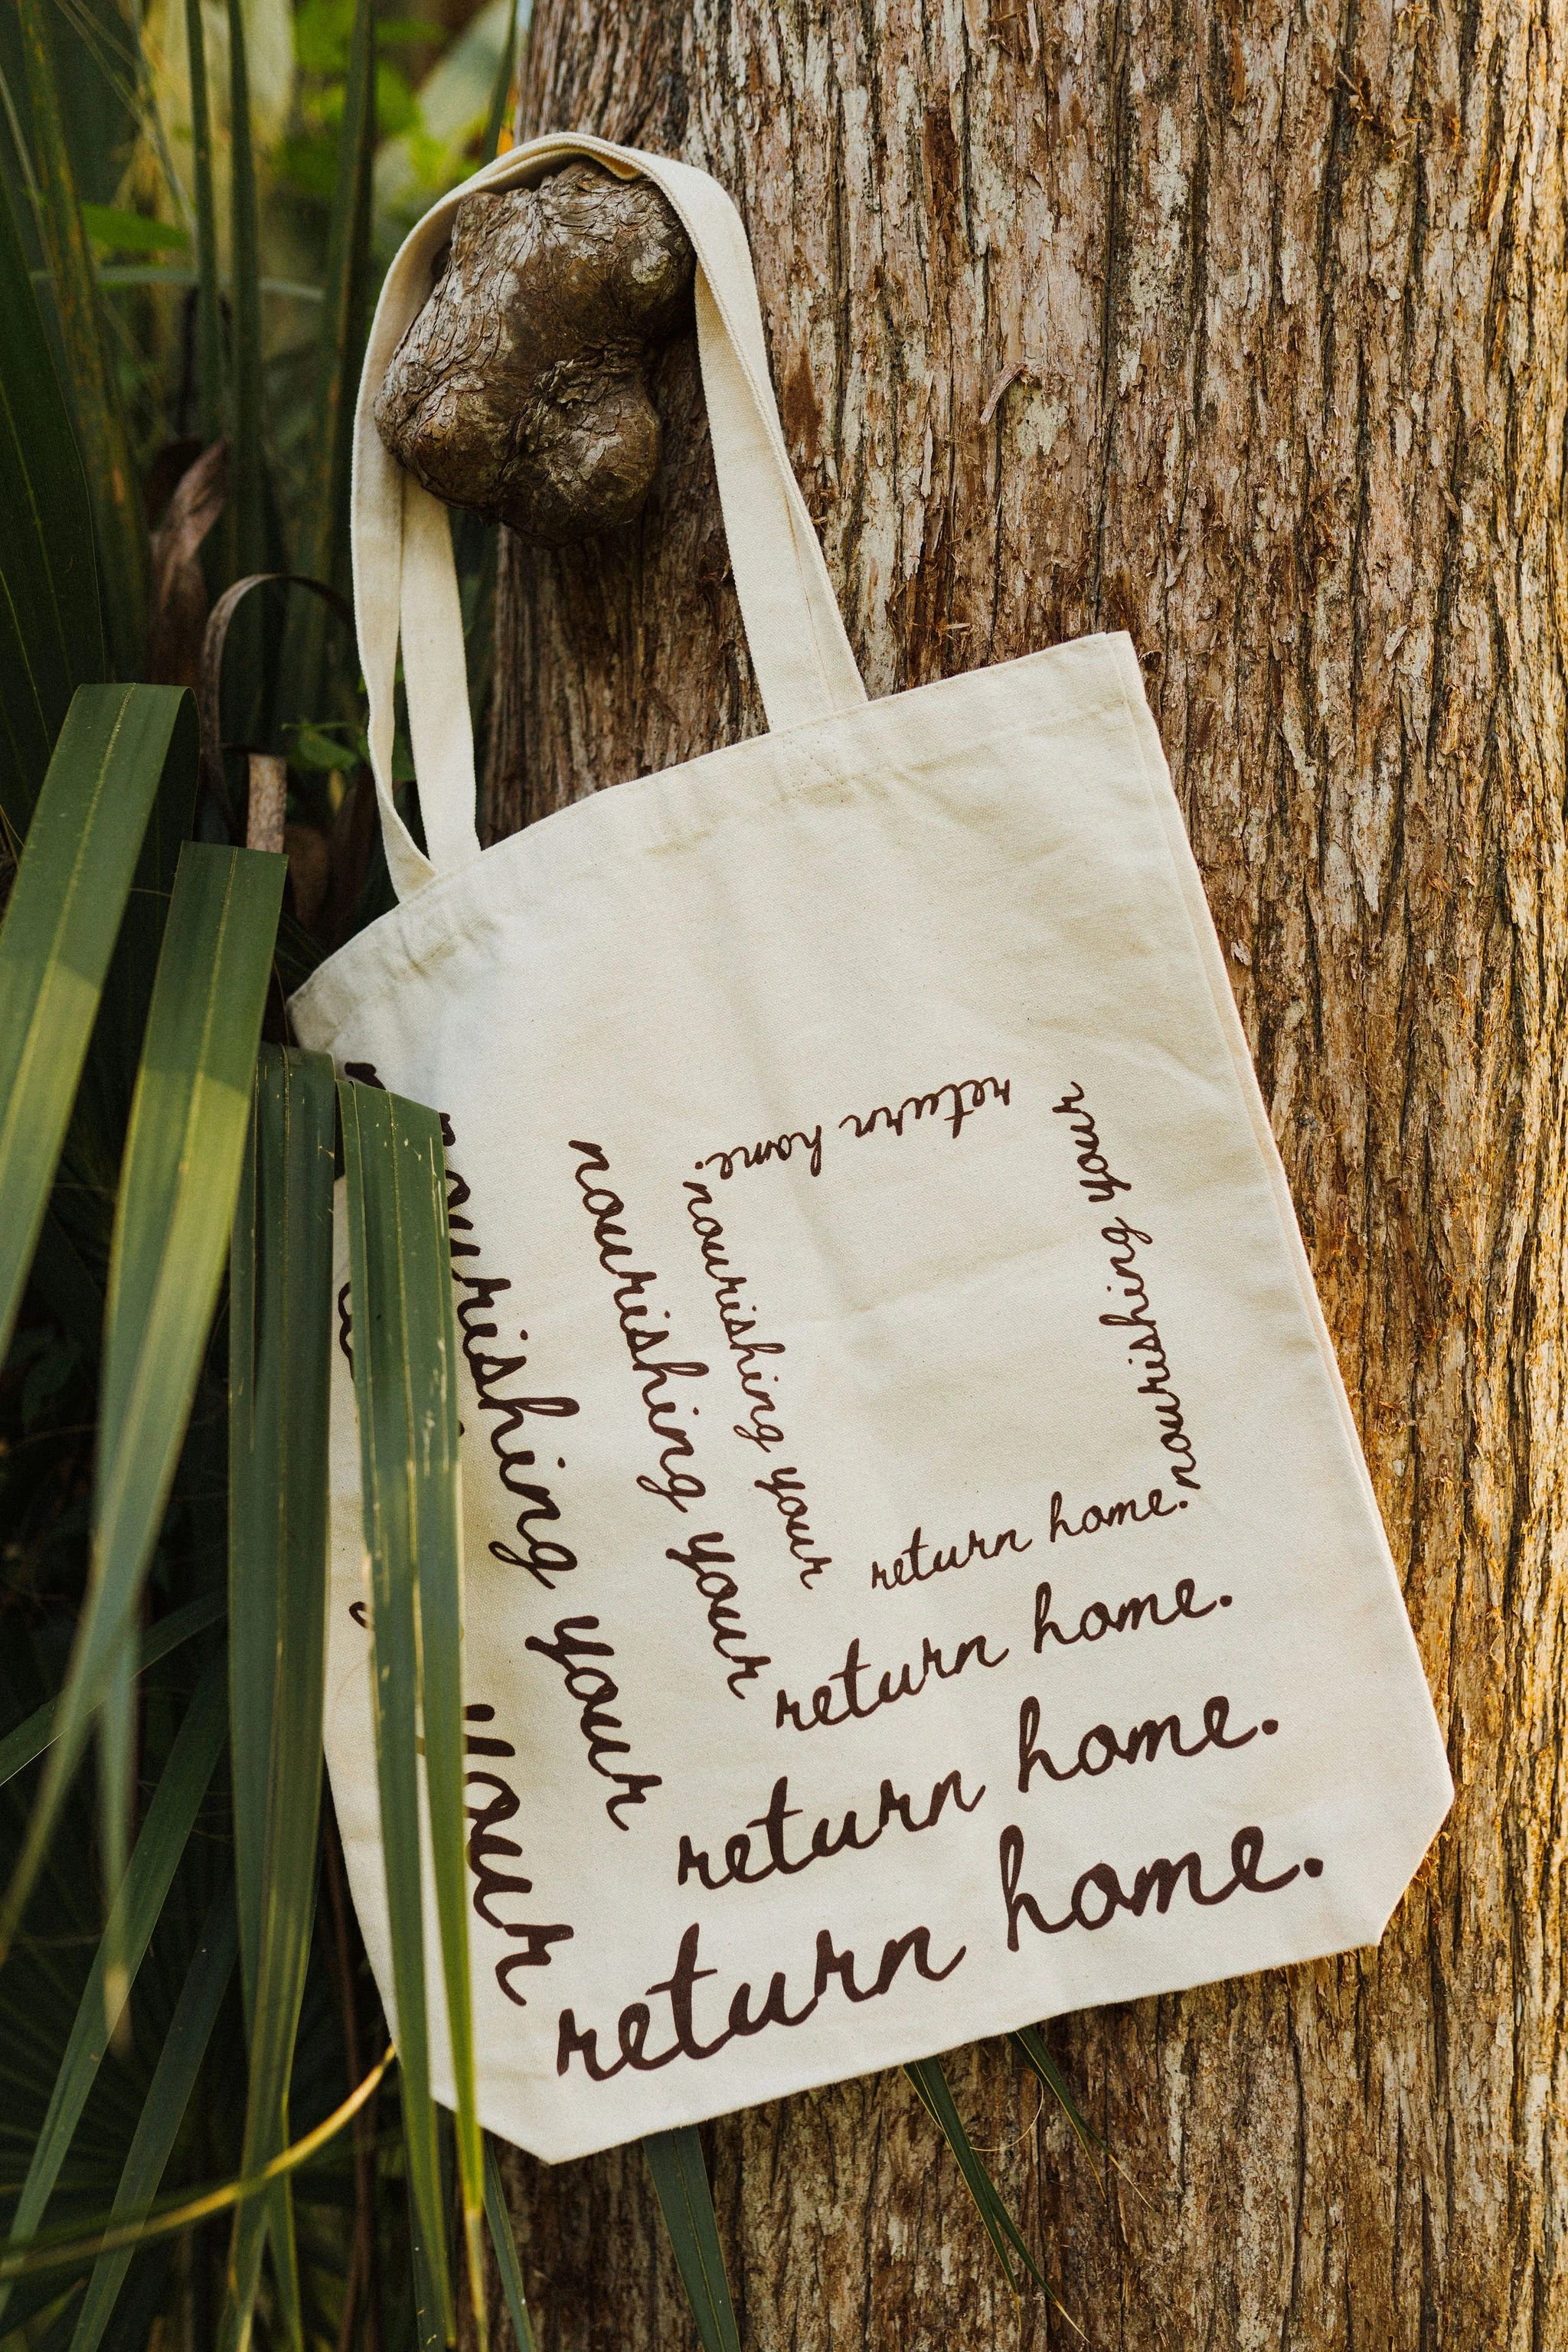 your
nourishing your
nourishing your
nourishing your
return home.
nourishing your
return home.
return home.
return home.
return home.